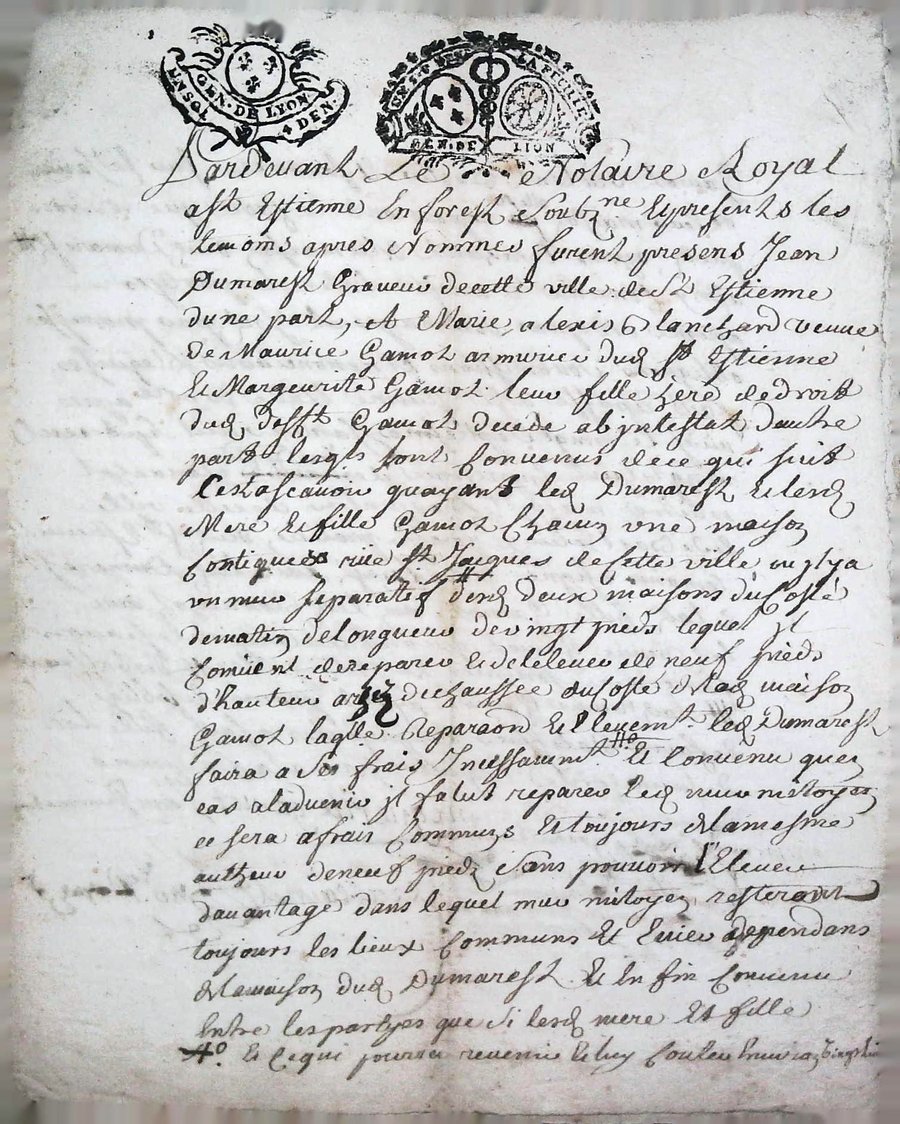 GEN · DE LYON ·
4 DEN ·
GEN · DE LION
Pardevant Le Notaire Royal
a st Estienne En forest Soubzne Et presents les
temoins apres Nommes furent presens Jean
Dumarest Graveur de cette ville de St Estienne
dune part, Et Marie, alexis Blanchard veuve
de Maurice Gamot armurier dud St Estienne
Et Margeurite Gamot leur fille here de droit
dud defft Gamot decede abintestat dautre
part lesqls sont Convenus de ce qui suit
Cest ascavoir quayant led Dumarest Et lesd
Mere Et fille Gamot Chacun une maison
Contigues rue st Jacques de Cette ville ou jl y a
un mur separatif desd deux maisons du Costé
de matin de longueur de vingt pieds lequel jl
Convient de reparer Et de lelever de neuf pieds
d'hauteur a rez de chaussee du Costé de lad maison
Gamot laqlle Reparaon Et Elevemt led Dumarest
faira a Ses frais Jncessamt #4o Et Convenu quen
cas aladvenir jl falut reparer led mur mitoyen
ce sera a frais Communs Et toujours de la mesme
auteur de neuf pieds Sans pouvoir l'Elever
davantage dans lequel mur mitoyen resteront
toujours les lieux Communs Et Evier dependans
de la maison dud Dumarest Et En fin Convenu
Entre les partyes que Si lesd mere Et fille
#4o Et Ce qui pourra revenir Et luy Couter Environ vingt